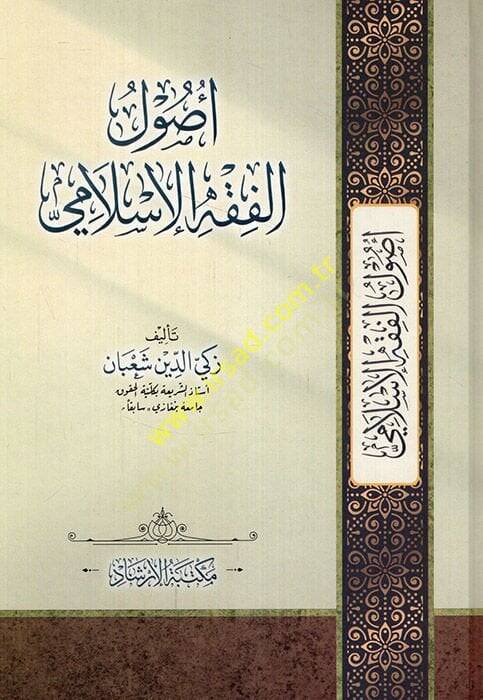 أُصُولُ
الفِقْهِ الإِسْلَامِيِّ
تَأليف
زكيّ الدِّين شَعْبَان
أستاذ الشريعة بكليّة الحقوق
جامعة بنغازي «سابقا»
مكتبة الإرشاد
أُصُولُ الفِقْهِ الإِسْلَامِيِّ